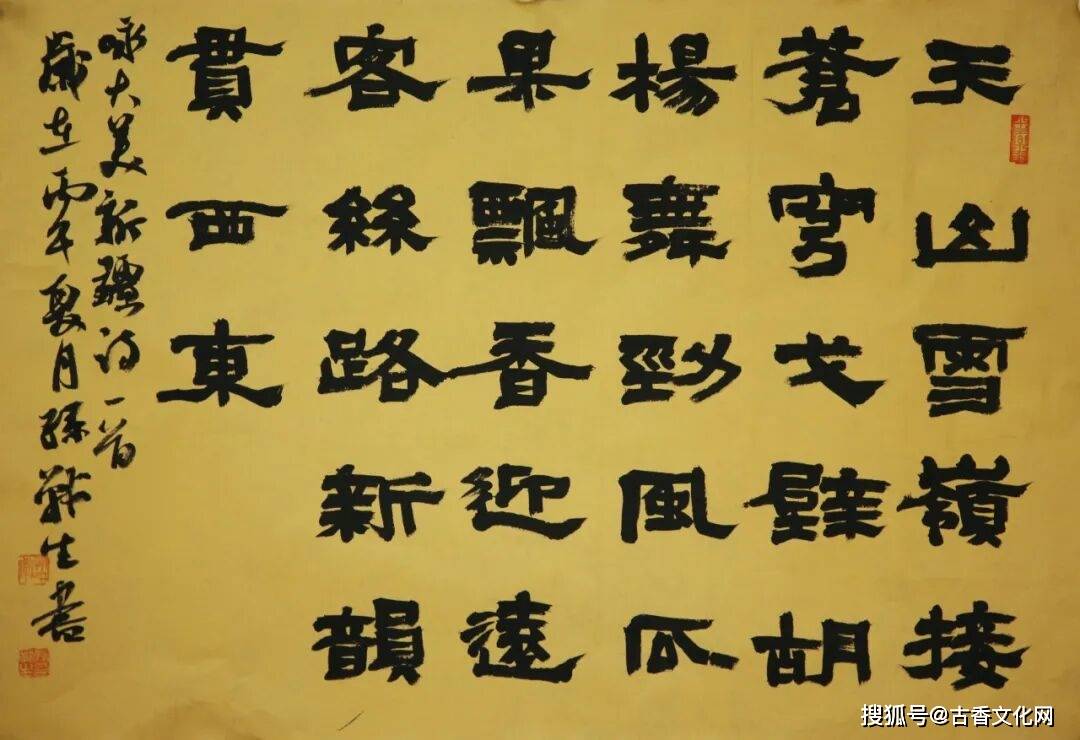 天山雪嶺接
蒼穹戈壁胡
楊舞勁風瓜
果飄香迎遠
客絲路新韻
貫西東
咏大美新疆诗一首
歲在丙午夏月孫戰生書
搜狐号@古香文化网